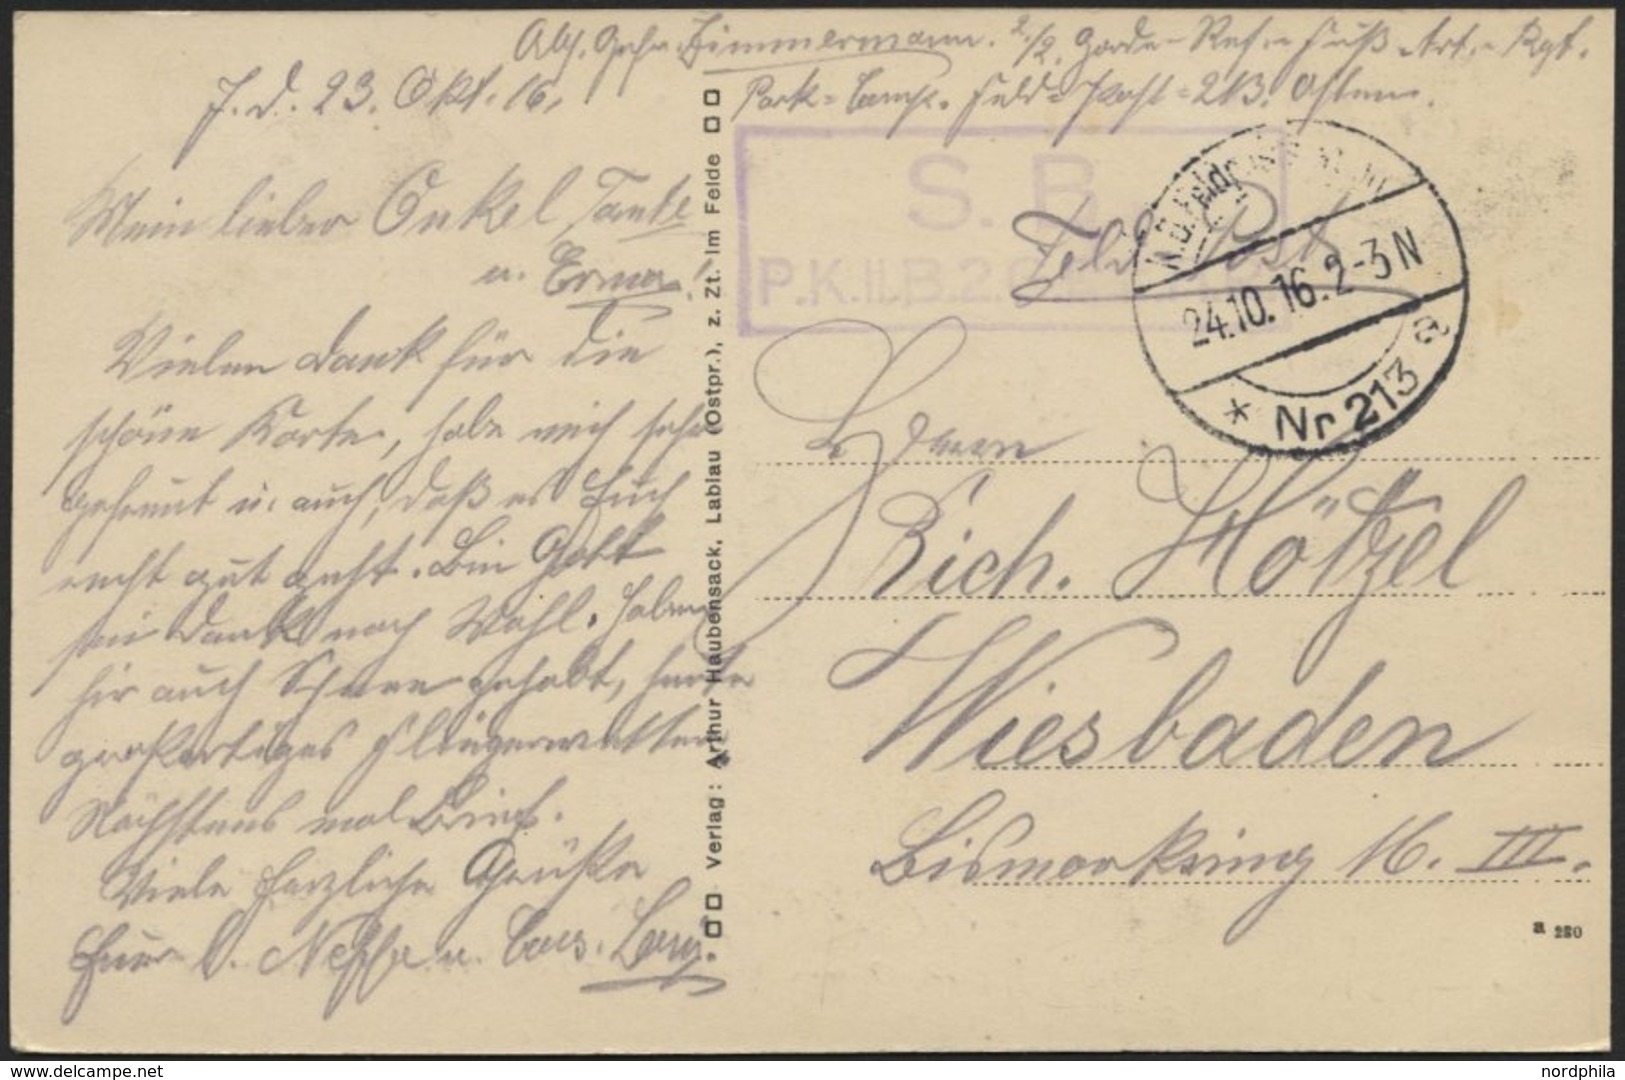 Abs. Gefr. Zimmermann. 2/2. Garde-Res.-Fuß-Art.-Rgt.
Park=Comp. Feld=Post=213. Osten.
J. d. 23. Okt. 16.
Mein lieber Onkel, Tante
u. Erna!
Vielen Dank für die
schöne Karte, habe mich sehr
gefreut u. auch, daß es Euch
recht gut geht. Bin Gott
sei Dank noch Wohl. Haben
hir auch Schnee gehabt, heute
großartiges Fliegerwetter
Nächstens mal Brief.
Viele herzliche Grüße
Euer l. Neffe u. Cous.
Verlag: Arthur Haubensack, Labiau (Ostpr.), z. Zt. im Felde
S. B.
P.K.II.B.2.G.
Feld Post
K.D. Feldp
24.10.16. 2-3 N
* Nr 213 a
Herrn
Rich. Hötzel
Wiesbaden
Bismarkring 16. III.
a 280
nordphila